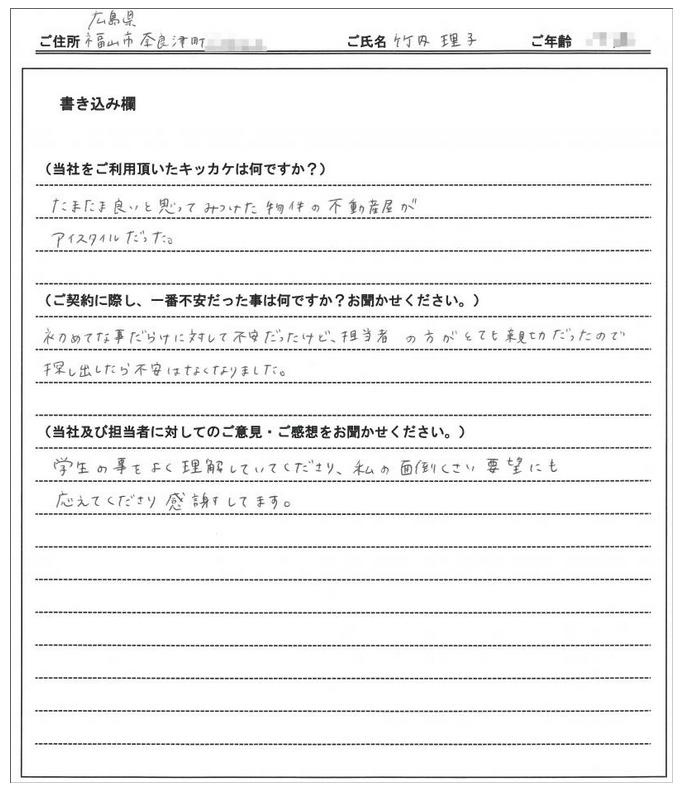 広島県
ご住所 福山市奈良津町 ご氏名 竹内 理子 ご年齢
書き込み欄
（当社をご利用頂いたキッカケは何ですか？）
たまたま良いと思ってみつけた物件の不動産屋が
アイスタイルだった。
（ご契約に際し、一番不安だった事は何ですか？お聞かせください。）
初めてな事だらけに対して不安だったけど、担当者 の方がとても親切だったので
探し出したら不安はなくなりました。
（当社及び担当者に対してのご意見・ご感想をお聞かせください。）
学生の事をよく理解していてくださり、私の面倒くさい要望にも
応えてくださり感謝してます。